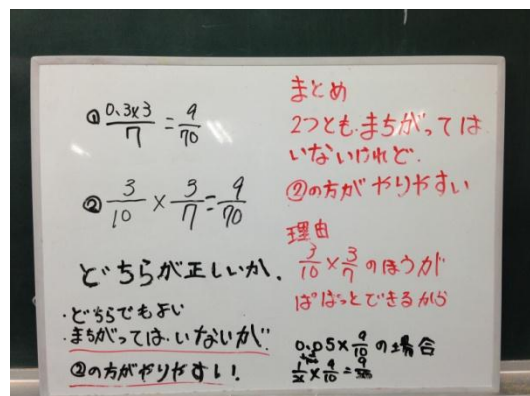 ① 0.3×3/7 = 9/70
② 3/10 × 3/7 = 9/70
どちらが正しいか.
・どちらでもよい
・まちがっては、いないが、
②の方がやりやすい!
まとめ
2つとも、まちがっては
いないけれど、
②の方がやりやすい
理由
3/10 × 3/7 のほうが
ぱぱっとできるから
0.05×9/10 の場合
× 9/10 =